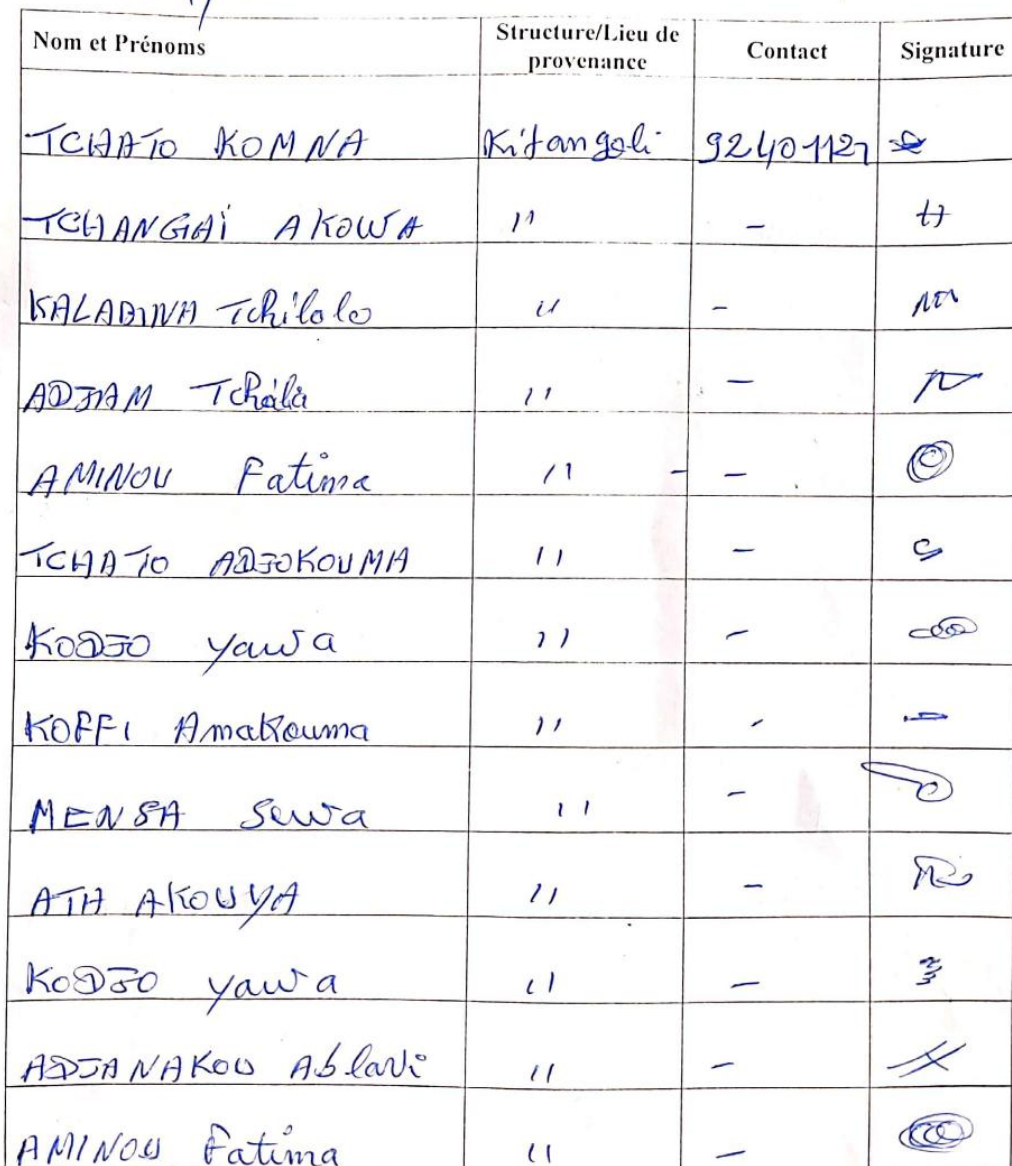 Nom et Prénoms Structure/Lieu de provenance Contact Signature
TCHATO KOMNA Kitangoli 92401127
TCHANGAÏ AKOWA " -
KALABINA Tchilolo " -
ADJAM Tchala " -
AMINOU Fatima " - -
TCHATO ADJOKOUMA " -
KODJO yawa " -
KOFFI Amakouma " -
MENSA Sewa " -
ATH AKOUYA " -
KODJO yawa " -
ADJANAKOU Ablavi " -
AMINOU Fatima " -